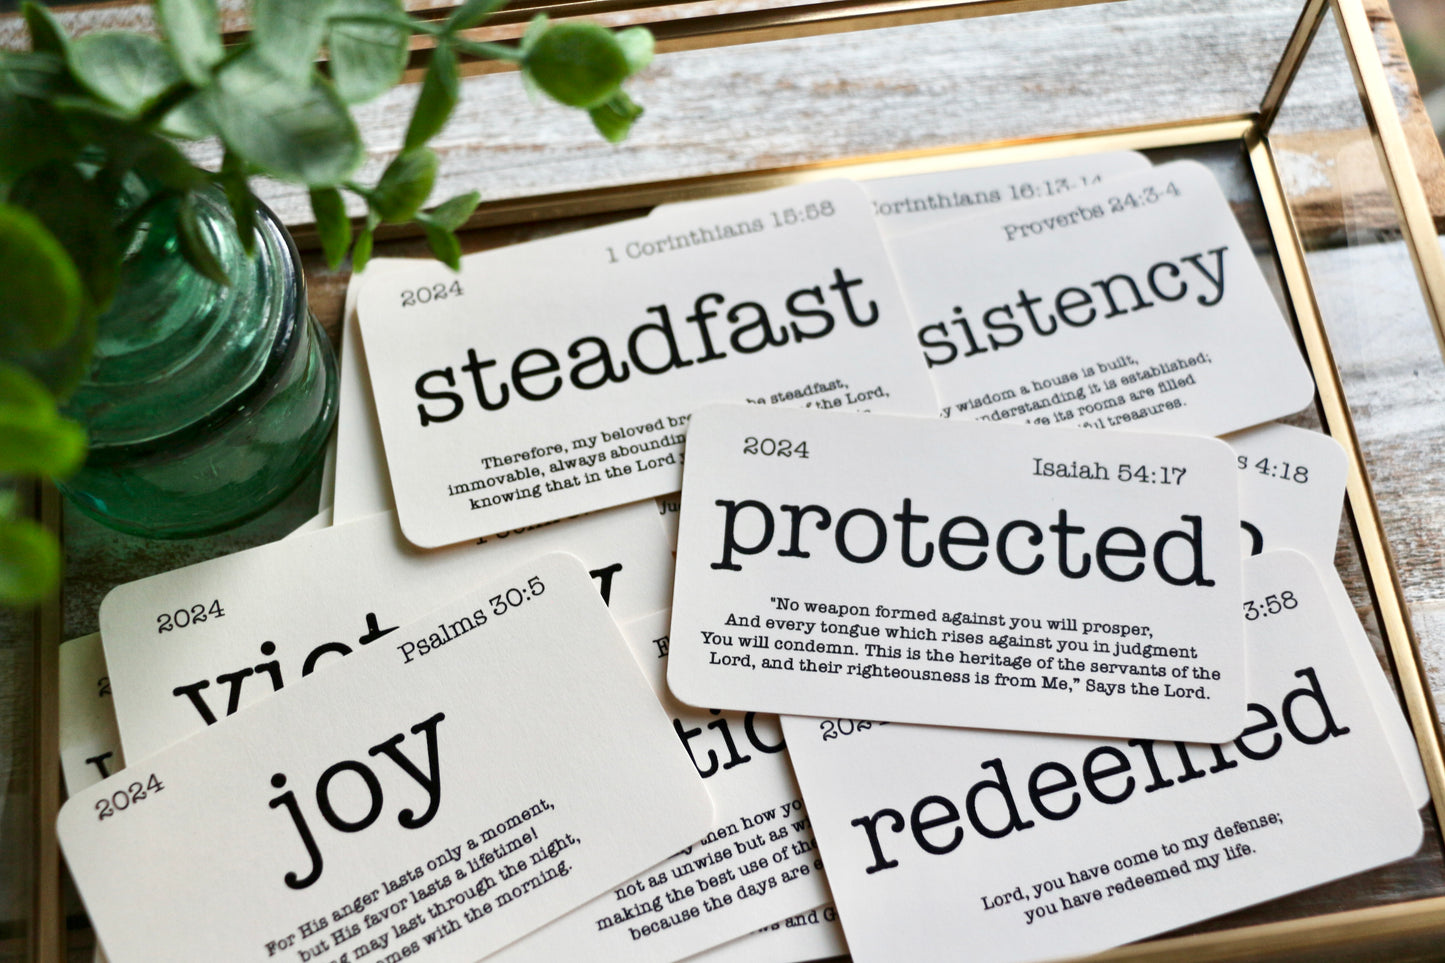 1 Corinthians 15:58
2024
steadfast
Therefore, my beloved be steadfast,
immovable, always the Lord,
knowing that in the Lord
Corinthians 16:13-14
Proverbs 24:3-4
sistency
wisdom a house is built,
understanding it is established;
its rooms are filled
treasures.
2024
Isaiah 54:17
protected
"No weapon formed against you will prosper,
And every tongue which rises against you in judgment
You will condemn. This is the heritage of the servants of the
Lord, and their righteousness is from Me,” Says the Lord.
4:18
2024
Psalms 30:5
2024
joy
For His anger lasts only a moment,
but His favor lasts a lifetime!
may last through the night,
with the morning.
then how
not as unwise but as
making the best use of the
because the days are
and
3:58
redeemed
Lord, you have come to my defense;
you have redeemed my life.